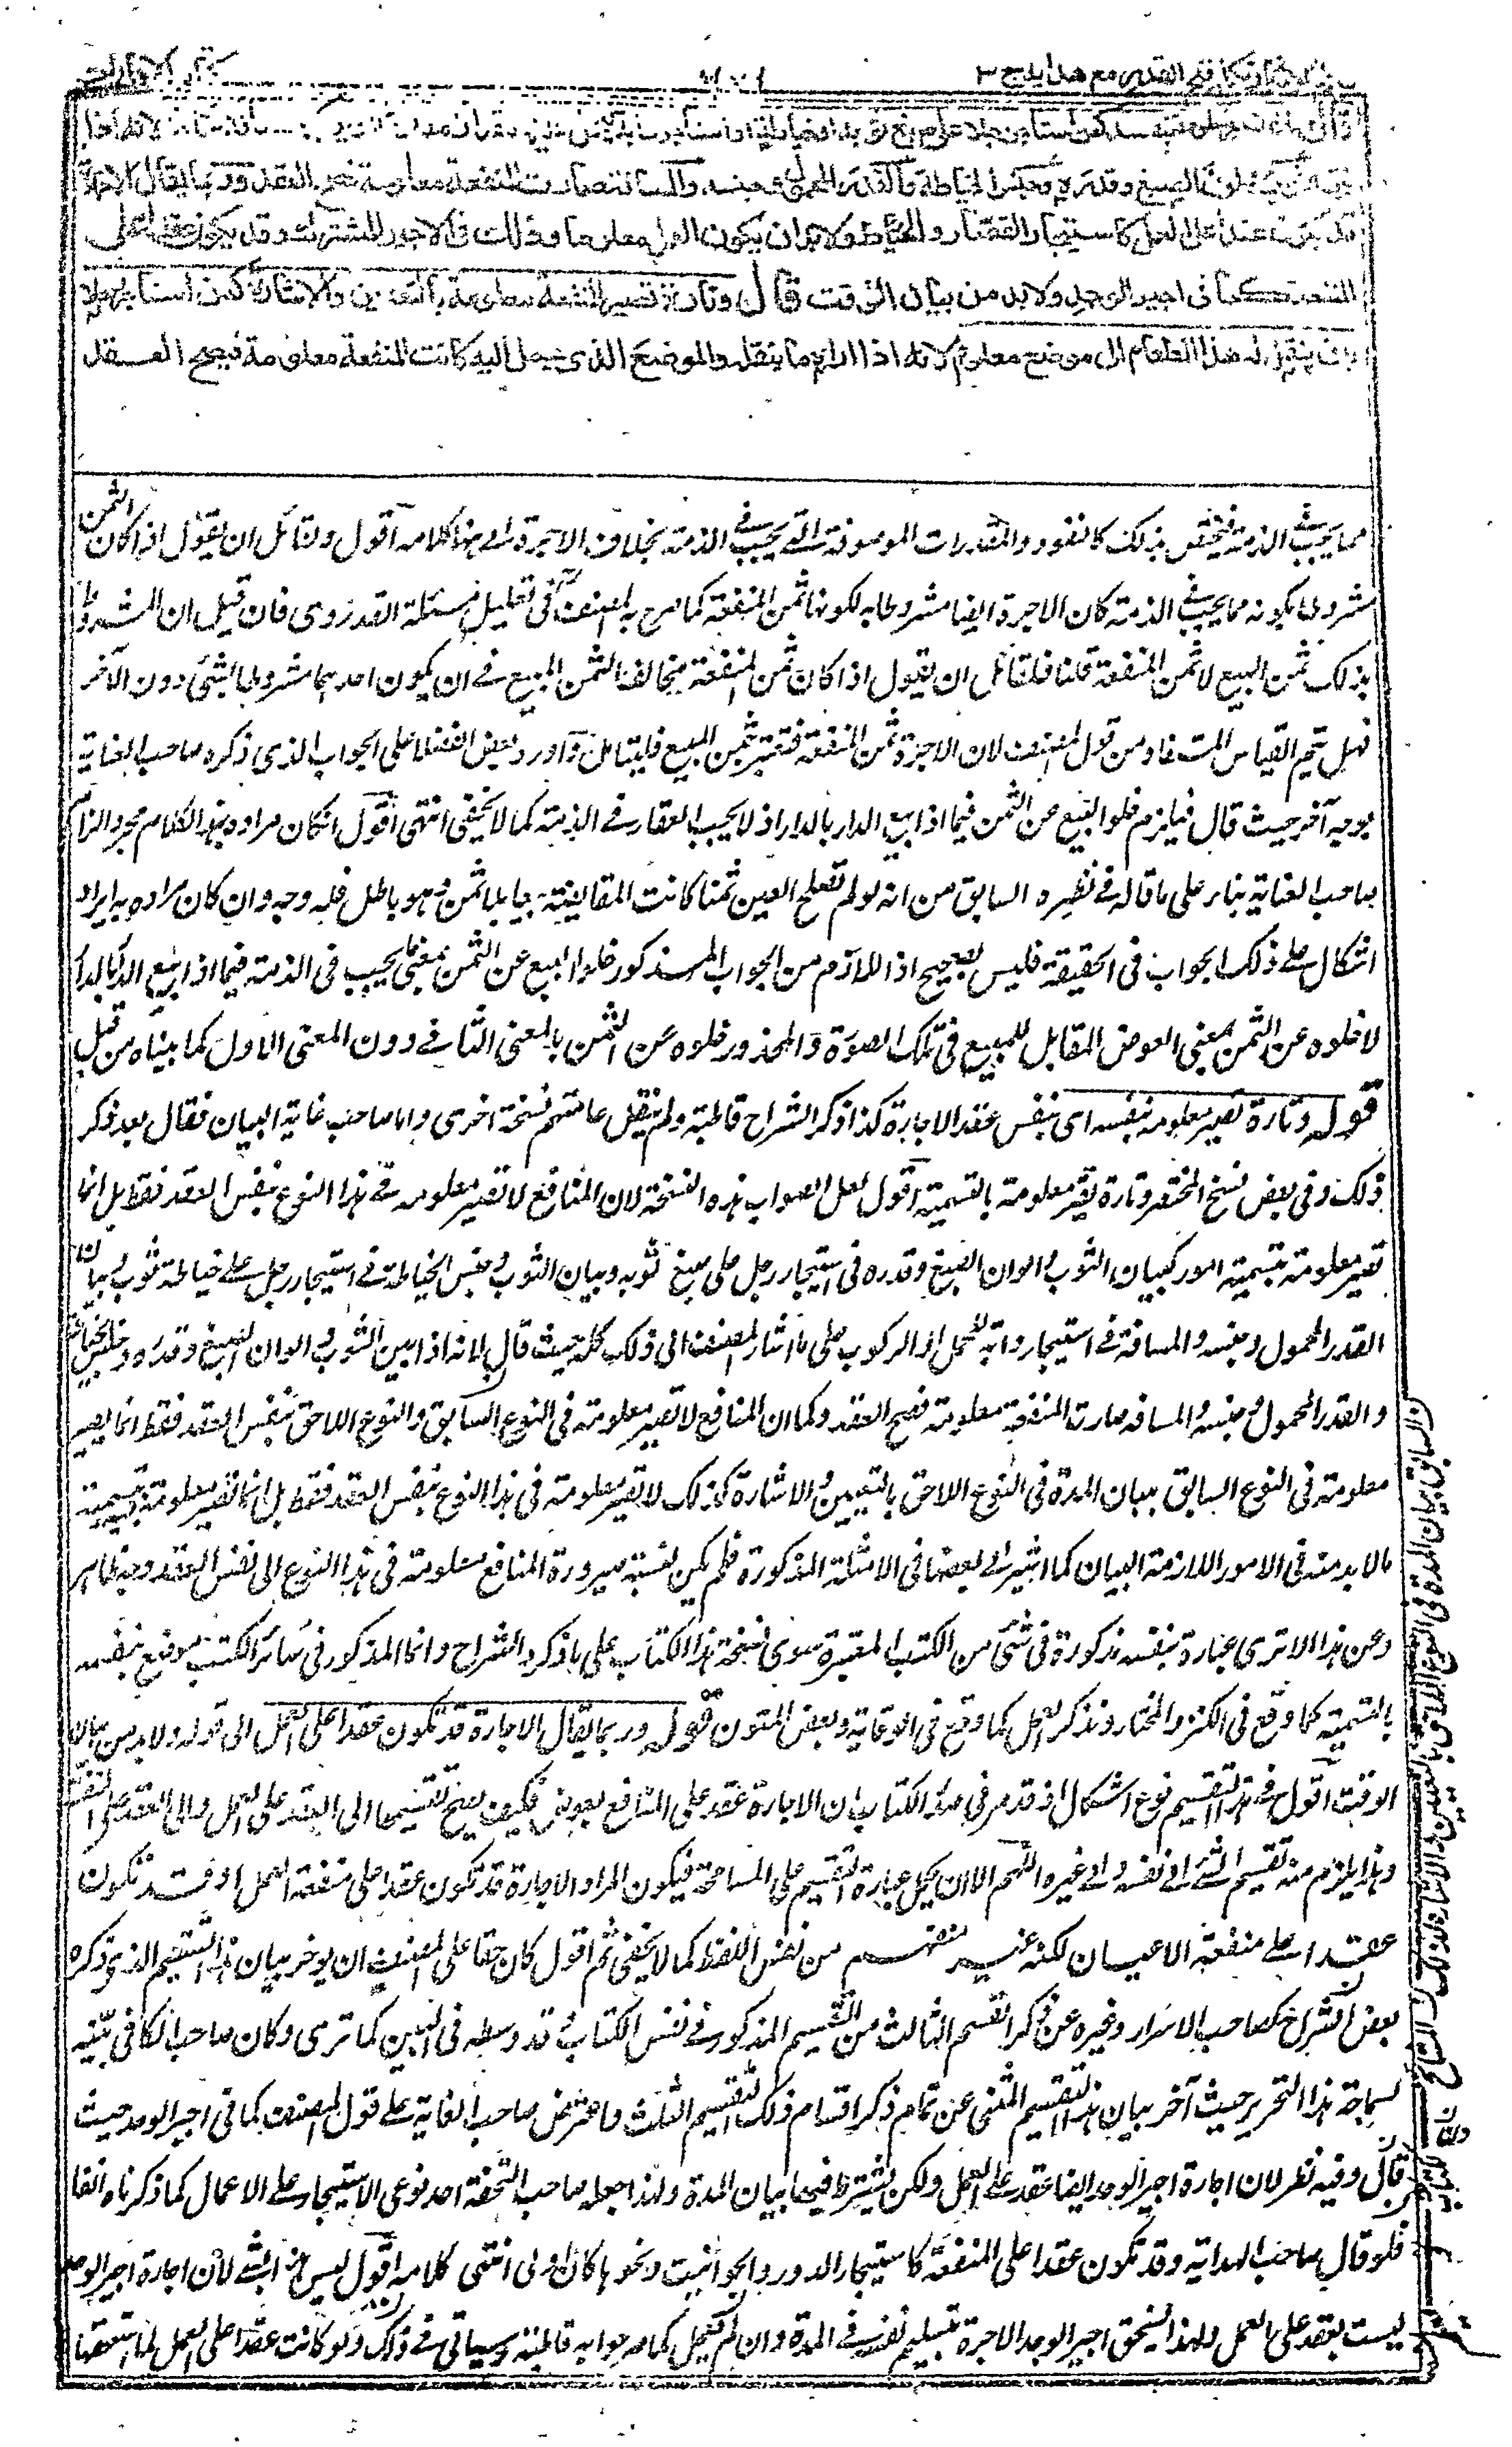 نتائج الافكار تكملة فتح القدير مع هداية ج ٣
كتاب الاجارات
قال وتارة تصير معلومة بنفسه كمن استأجر رجلا على صبغ ثوبه او خياطته او استأجر دابة ليحمل عليها مقدارا معلوما او يركبها مسافة سماها لانه اذا
بين الثوب ولون الصبغ وقدره وجنس الخياطة والقدر المحمول وجنسه والمسافة صارت المنفعة معلومة فصح العقد وربما يقال الاجارة
قد تكون عقدا على العمل كاستيجار القصار والخياط ولا بد ان يكون العمل معلوما وذلك في الاجير المشترك وقد يكون عقدا على
المنفعة كما في اجير الوحد ولا بد من بيان الوقت قال وتارة تصير المنفعة معلومة بالتعيين والاشارة كمن استأجر رجلا
بان ينقل له هذا الطعام الى موضع معلوم لانه اذا اراه ما ينقله والموضع الذي يحمل اليه كانت المنفعة معلومة فيصح العقد
مما يجب في الذمة فيختص بذلك كالنقود والمقدرات الموصوفة التي يجب في الذمة بخلاف الاجرة الى هنا كلامه اقول ولقائل ان يقول اذا كان الثمن
مشروطا بكونه مما يجب في الذمة كان الاجرة ايضا مشروطا به لكونها ثمن المنفعة كما صرح به المصنف في تعليل مسئلة القدوري فان قيل ان المشروط
بذلك ثمن المبيع لا ثمن المنفعة قلنا فلقائل ان يقول اذا كان ثمن المنفعة مخالفا لثمن المبيع في ان يكون احدهما مشروطا بشئ دون الآخر
فهل يتم القياس المستفاد من قول المصنف لان الاجرة ثمن المنفعة فتعتبر بثمن المبيع فليتأمل واورد بعض الفضلاء على الجواب الذي ذكره صاحب العناية
بوجه آخر حيث قال فيلزم خلو البيع عن الثمن فيما اذا بيع الدار بالدار اذ لا يجب العقار في الذمة كما لا يخفى انتهى اقول ان كان مراده بهذا الكلام مجرد الزام
صاحب العناية بناء على ما قاله في نظيره السابق من انه لو لم تصلح العين ثمنا كانت المقايضة بيعا بلا ثمن وهو باطل فله وجه وان كان مراده به ايراد
اشكال على ذلك الجواب في الحقيقة فليس بصحيح اذ اللازم من الجواب المذكور خلو البيع عن الثمن بمعنى ما يجب في الذمة فيما اذا بيع الدار بالدار
لا خلوه عن الثمن بمعنى العوض المقابل للمبيع في تلك الصورة والمحذور خلوه عن الثمن بالمعنى الثاني دون المعنى الاول كما بيناه من قبل
قوله وتارة تصير معلومة بنفسه اى بنفس عقد الاجارة كذا ذكر الشراح قاطبة ولم ينقل عامتهم نسخة اخرى واما صاحب غاية البيان فقال بعد ذكر
ذلك وفى بعض نسخ المختصر وتارة تصير معلومة بالتسمية اقول لعل الصواب هذه النسخة لان المنافع لا تصير معلومة في هذا النوع بنفس العقد فقط بل انما
تصير معلومة بتسمية امور كبيان الثوب والوان الصبغ وقدره فى استيجار رجل على صبغ ثوبه وبيان الثوب وجنس الخياطة في استيجار رجل على خياطة ثوب وبيان
القدر المحمول وجنسه والمسافة في استيجار دابة للحمل او الركوب على ما اشار المصنف الى ذلك كله حيث قال لانه اذا بين الثوب والوان الصبغ وقدره وجنس الخياطة
والقدر المحمول وجنسه والمسافة صارت المنفعة معلومة فصح العقد وكما ان المنافع لا تصير معلومة فى النوع السابق والنوع اللاحق بنفس العقد فقط انما يصير
معلومة فى النوع السابق ببيان المدة فى النوع اللاحق بالتعيين والاشارة كذلك لا تصير معلومة فى هذا النوع بنفس العقد فقط بل انما تصير معلومة بتسمية
ما لا بد منه فى الامور اللازمة البيان كما اشير الى بعضها فى الامثلة المذكورة فلم يكن لنسبة صيرورة المنافع معلومة فى هذا النوع الى نفس العقد وجه ظاهر
وعن هذا لا ترى عبارة بنفسه مذكورة فى شئ من الكتب المعتبرة سوى نسخة هذا الكتاب على ما ذكره الشراح وانما المذكور فى سائر الكتب موضع بنفسه
بالتسمية كما وقع فى الكنز والمختار وبذكر العمل كما وقع فى الوقاية وبعض المتون قوله وربما يقال الاجارة قد تكون عقدا على العمل الى قوله ولا بد من بيان
الوقت اقول فى هذا التقسيم نوع اشكال اذ قد مر فى صدر الكتاب ان الاجارة عقد على المنافع بعوض فكيف يصح تقسيمها الى العقد على العمل والى العقد على المنفعة
وهذا يلزم منه تقسيم الشئ الى نفسه والى غيره اللهم الا ان يحمل عبارة التقسيم على المسامحة فيكون المراد الاجارة قد تكون عقدا على منفعة العمل او قد تكون
عقدا على منفعة الاعيان لكنه غير منفهم من نفس اللفظ كما لا يخفى ثم اقول كان حقا على المصنف ان يوخر بيان هذا التقسيم الذي ذكره
بعض الشراح كصاحب الاسرار وغيره عن ذكر القسم الثالث من التقسيم المذكور في نفس الكتاب وقد وسطه فى البين كما ترى وكان صاحب الكافى تنبه
لسماجة هذا التحرير حيث آخر بيان هذا التقسيم المثنى عن تمام ذكر اقسام ذلك التقسيم المثلث واعترض صاحب الغاية على قول المصنف كما فى اجير الوحد حيث
قال وفيه نظر لان اجارة اجير الوحد ايضا عقد على العمل ولكن يشترط فيها بيان المدة ولهذا جعله صاحب التحفة احد نوعى الاستيجار على الاعمال كما ذكرناه آنفا
فلو قال صاحب الهداية وقد تكون عقدا على المنفعة كاستيجار الدور والحوانيت ونحوها كان اولى انتهى كلامه اقول ليس هذا بشئ لان اجارة اجير الوحد
ليست بعقد على العمل ولهذا يستحق اجير الوحد الاجرة بتسليم نفسه في المدة وان لم يعمل كما صرحوا به قاطبة وسيأتى في ذلك ولو كانت عقدا على العمل لما استحقها